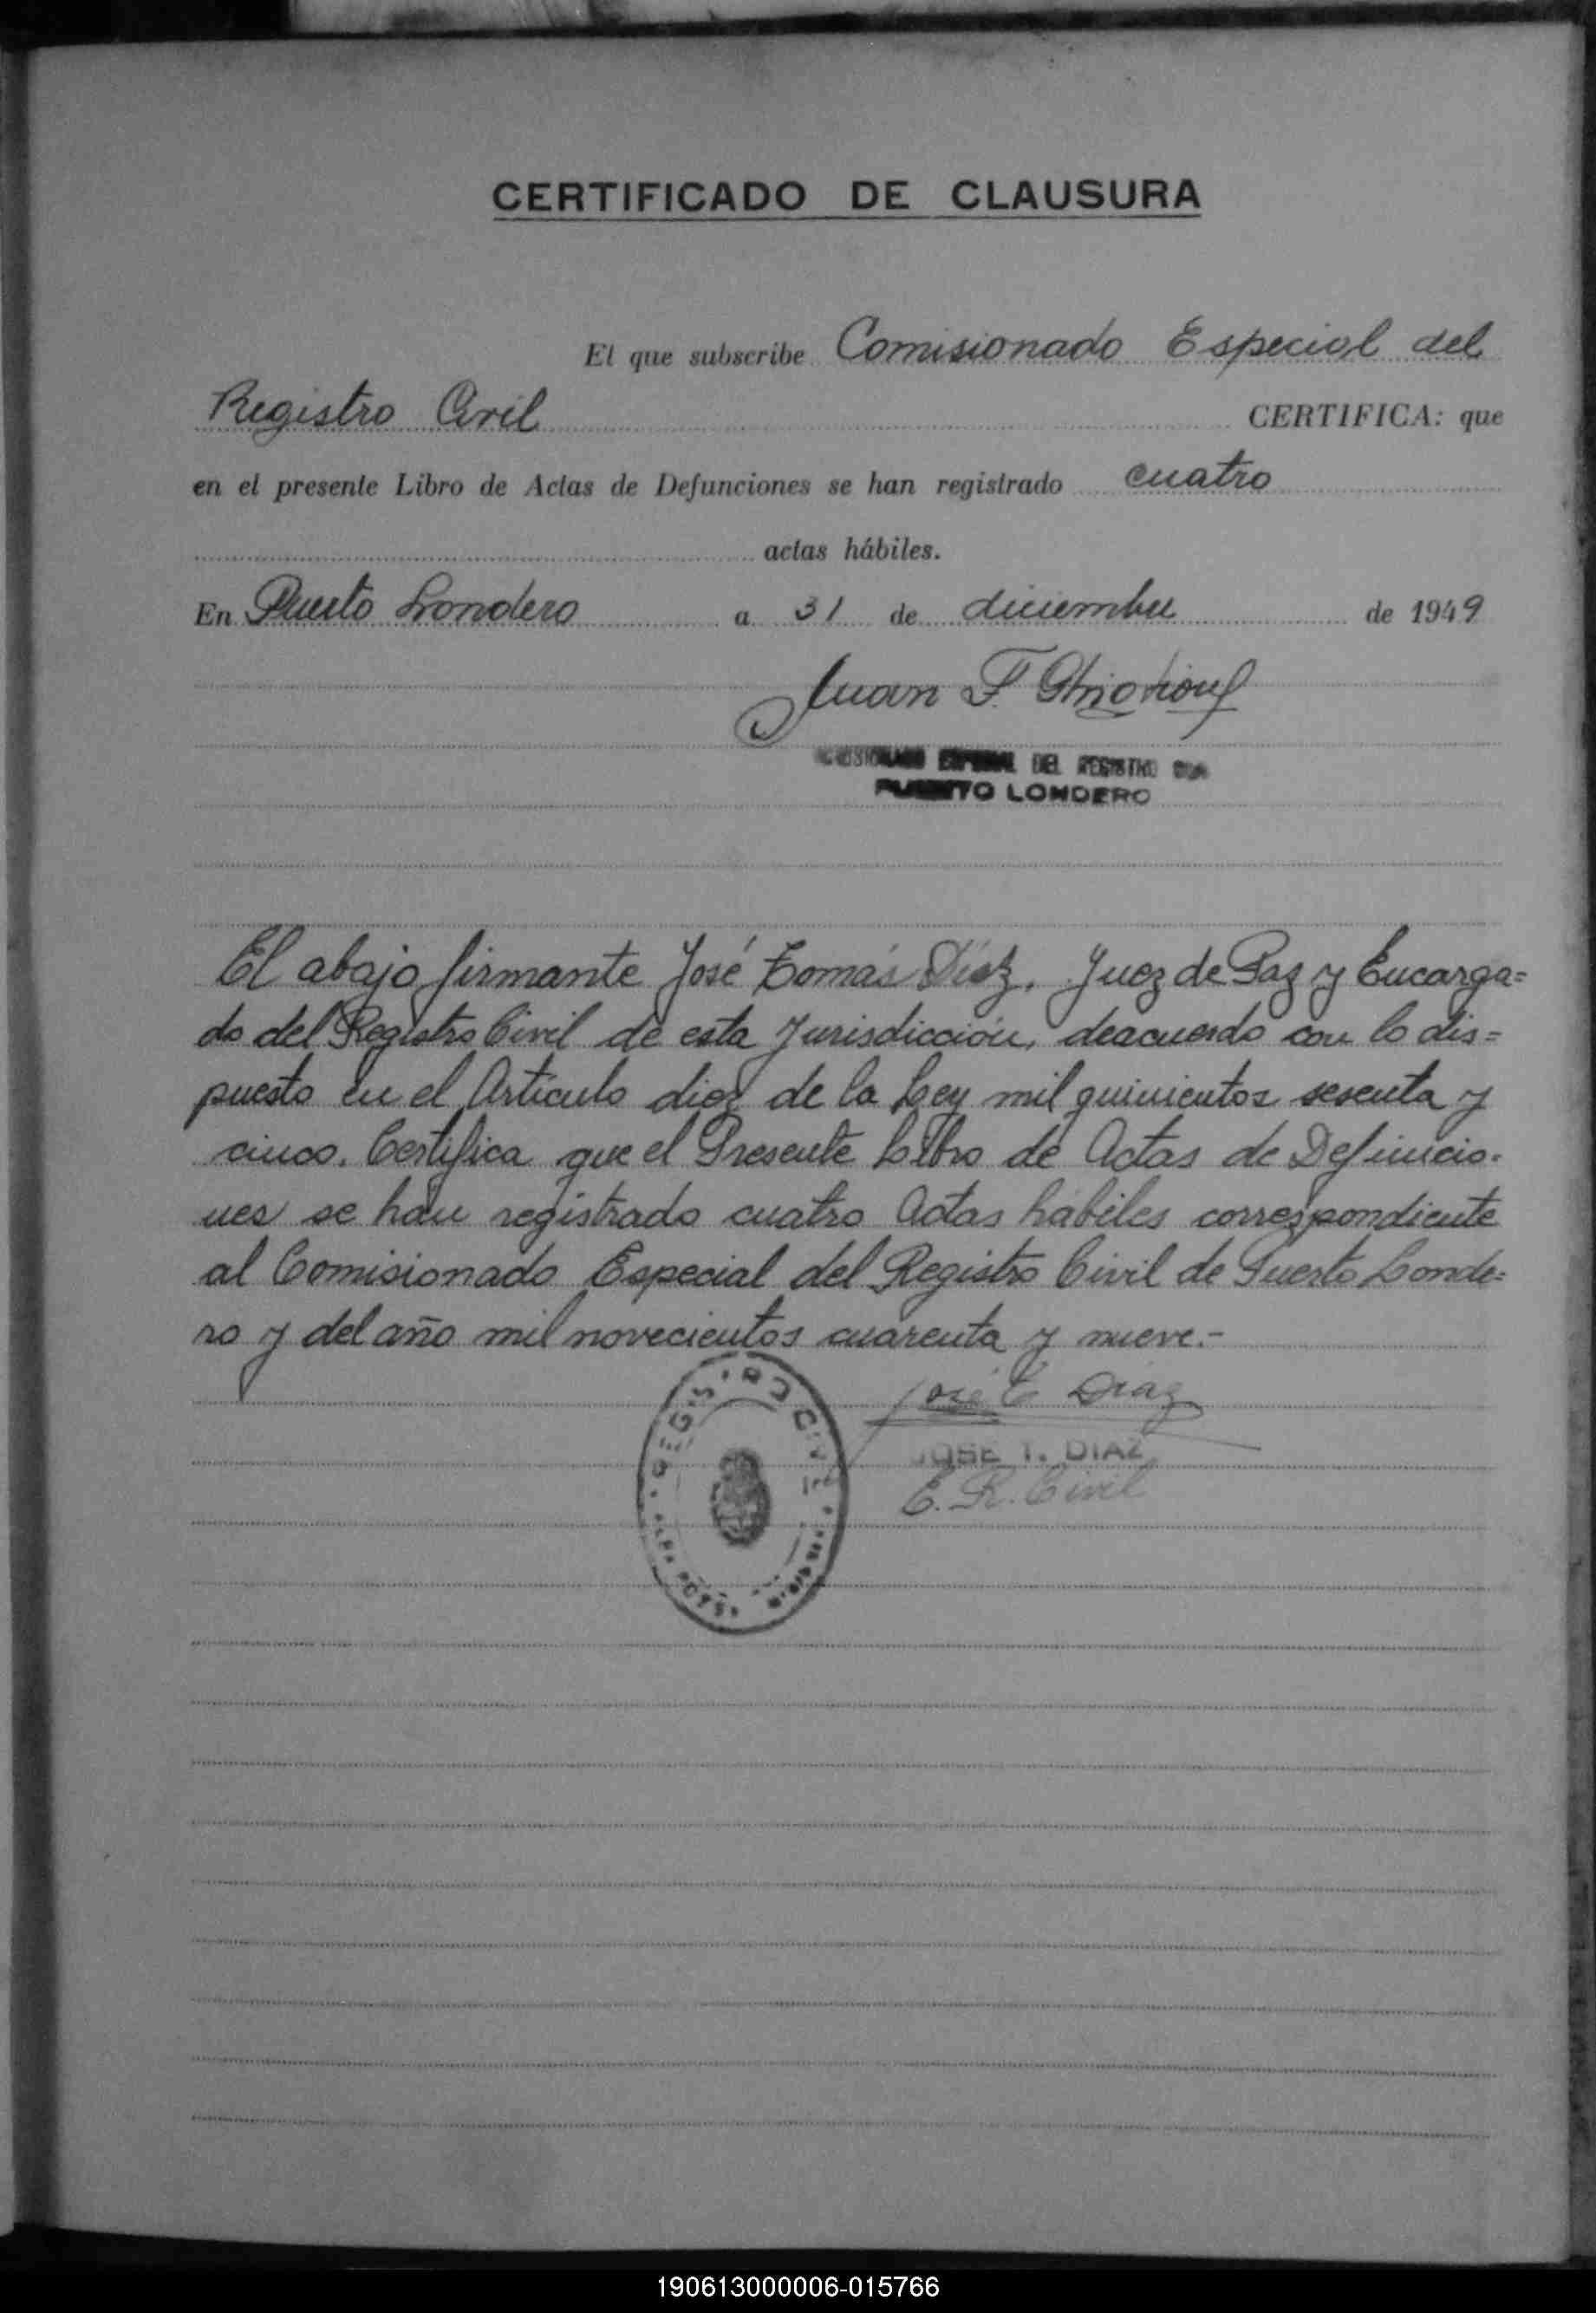 CERTIFICADO DE CLAUSURA
El que subscribe Comisionado Especial del
Registro Civil CERTIFICA: que
en el presente Libro de Actas de Defunciones se han registrado cuatro
actas hábiles.
En Puerto Londero a 31 de diciembre de 1949
Juan F.
ESPECIAL DEL REGISTRO
PUERTO LONDERO
El abajo firmante José Tomás Díaz, Juez de Paz y Encarga=
do del Registro Civil de esta Jurisdicción, deacuerdo con lo dis=
puesto en el Artículo diez de la Ley mil quinientos sesenta y
cinco. Certifica que el Presente Libro de Actas de Defuncio-
nes se han registrado cuatro Actas hábiles correspondiente
al Comisionado Especial del Registro Civil de Puerto Londe=
ro y del año mil novecientos cuarenta y nueve.-
José T Díaz
REGISTRO CIVIL
JOSE T. DIAZ
E. R. Civil
190613000006-015766